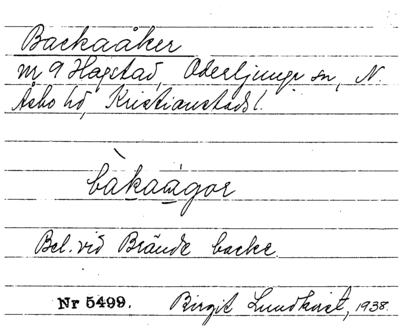 Backaåker
nr 9 Hagstad, Oderljunga sn, N.
Åsbo hd, Kristianstads l.
bàkaágor
Bel. vid Brände backe.
Nr 5499. Birgit Lundkvist, 1938.